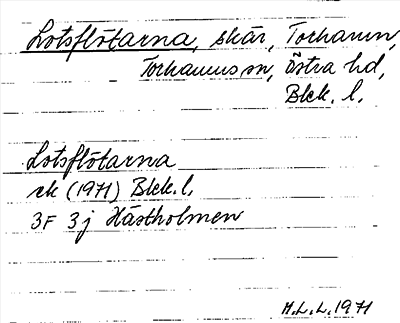 Lotsflötarna, skär, Torhamn,
Torhamns sn, Östra hd,
Blek. l.
Lotsflötarna
ek (1971) Blek. l.
3F 3j Hästholmen
H.L.L. 1971